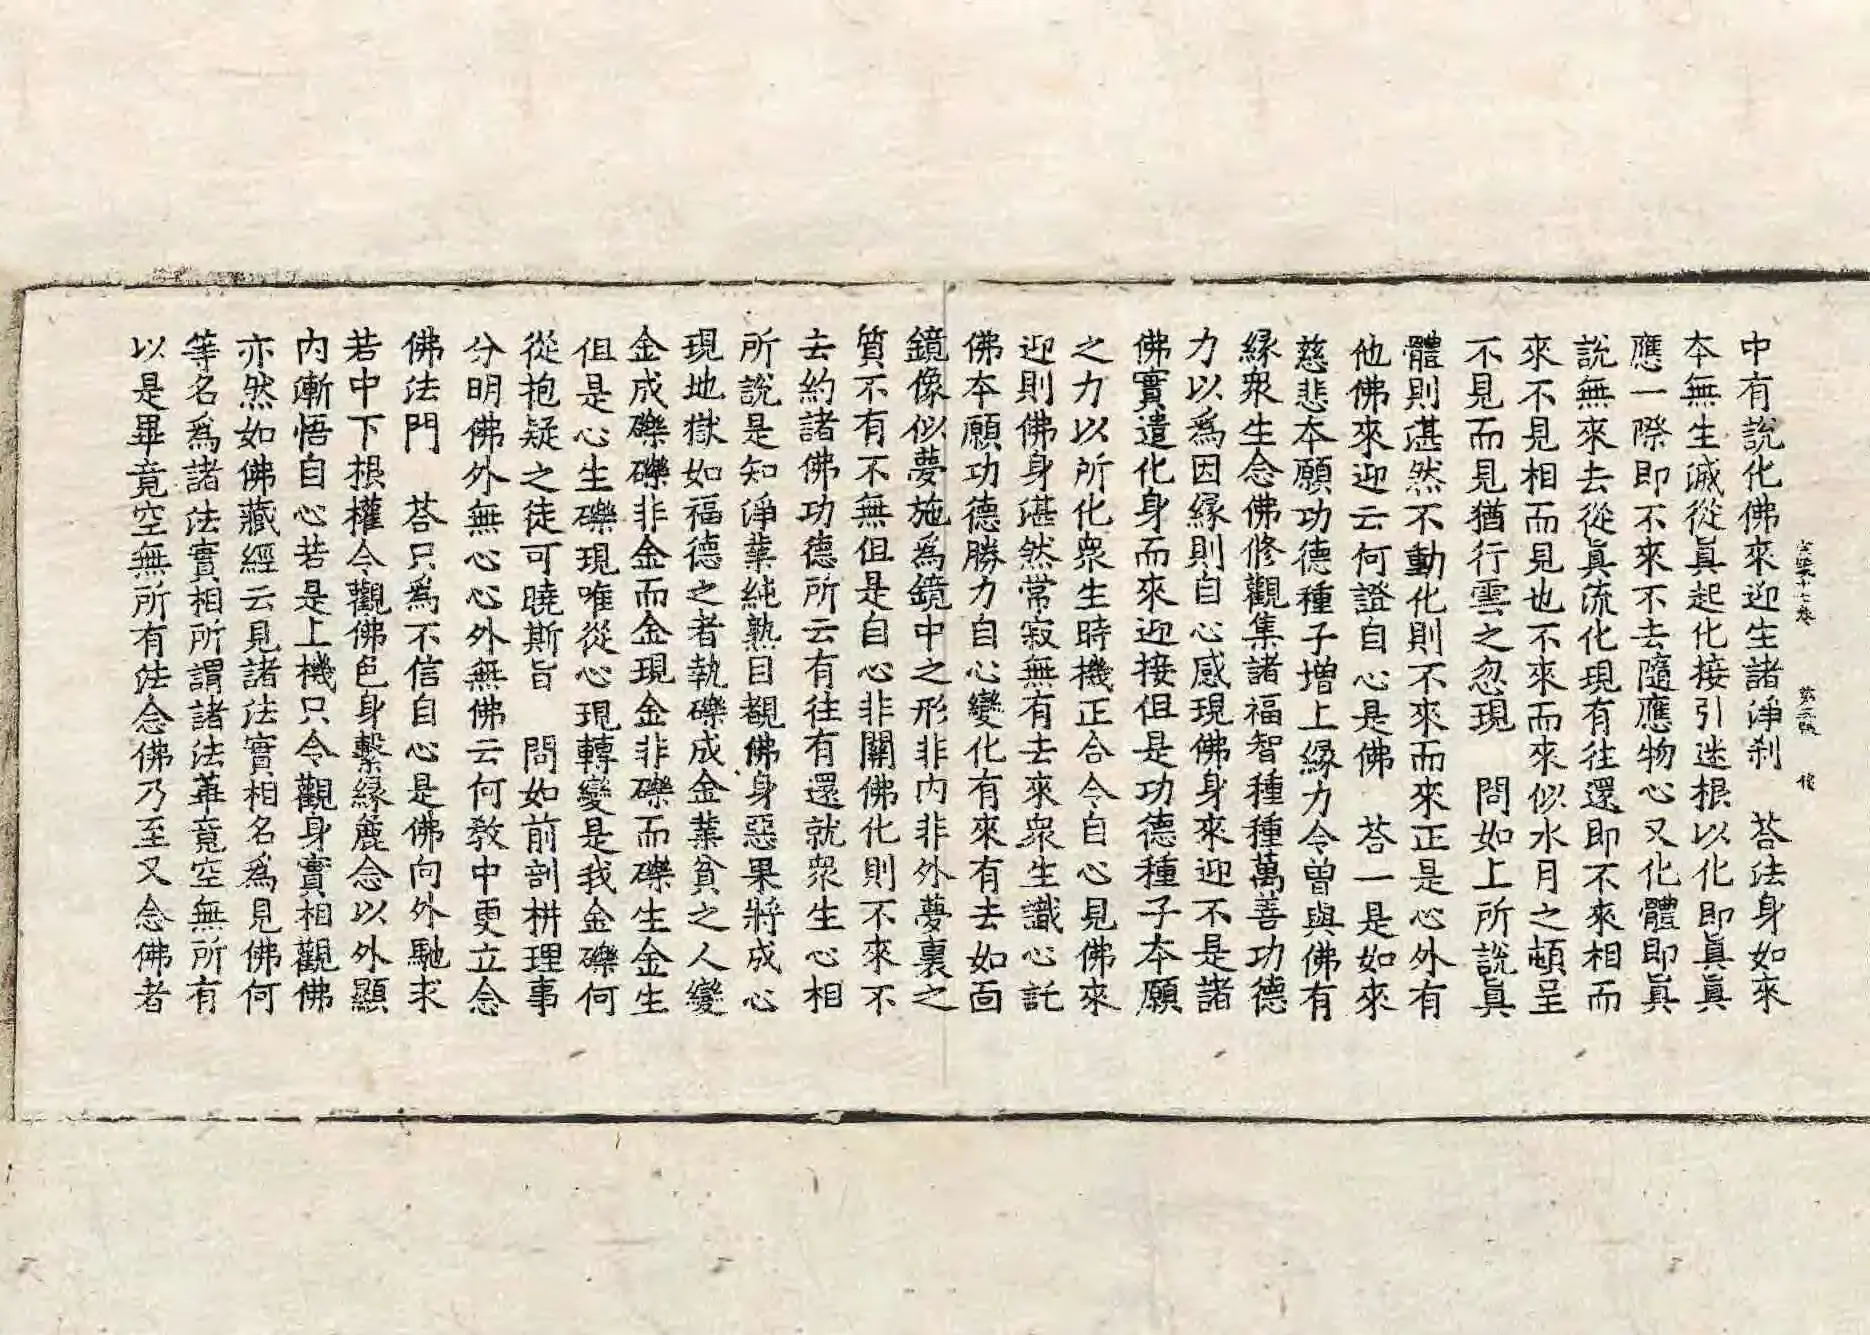 中有說化佛來迎生諸淨刹　荅法身如來
本無生滅從眞起化接引迷根以化即眞眞
應一際即不來不去隨應物心又化體即眞
說無來去從眞流化現有往還即不來相而
來不見相而見也不來而來似水月之頓呈
不見而見猶行雲之忽現　問如上所說眞
體則湛然不動化則不來而來正是心外有
他佛來迎云何證自心是佛　荅一是如來
慈悲本願功德種子增上緣力令曾與佛有
緣衆生念佛修觀集諸福智種種萬善功德
力以爲因緣則自心感現佛身來迎不是諸
佛實遣化身而來迎接但是功德種子本願
之力以所化衆生時機正合令自心見佛來
迎則佛身湛然常寂無有去來衆生識心託
佛本願功德勝力自心變化有來有去如面
鏡像似夢施爲鏡中之形非內非外夢裏之
質不有不無但是自心非關佛化則不來不
去約諸佛功德所云有往有還就衆生心相
所說是知淨業純熟目覩佛身惡果將成心
現地獄如福德之者執礫成金業貧之人變
金成礫礫非金而金現金非礫而礫生金生
但是心生礫現唯從心現轉變是我金礫何
從抱疑之徒可曉斯旨　問如前剖析理事
分明佛外無心心外無佛云何教中更立念
佛法門　荅只爲不信自心是佛向外馳求
若中下根權令觀佛色身繫緣麁念以外顯
內漸悟自心若是上機只令觀身實相觀佛
亦然如佛藏經云見諸法實相名爲見佛何
等名爲諸法實相所謂諸法畢竟空無所有
以是畢竟空無所有法念佛乃至又念佛者